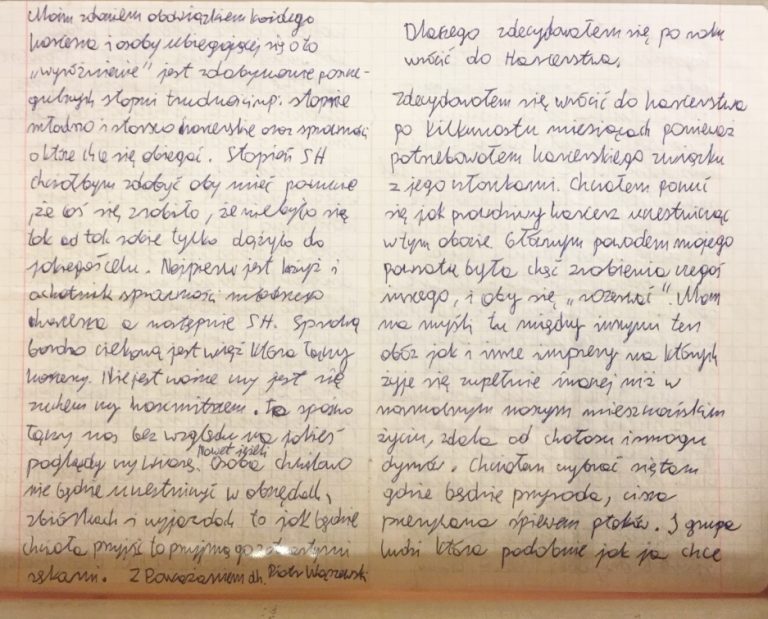 Moim zdaniem obowiązkiem każdego
harcerza i osoby ubiegającej się o to
„wyróżnienie” jest zdobywanie poszcze-
gulnych stopni trudności np. stopnie
młodzika i starsko harcerskie oraz sprawności
o które chce się ubiegać. Stopień SH
chciałbym zdobyć aby mieć poczucie
, że coś się zrobiło, że nie było się
tak od tak sobie tylko dążyło do
jakiegoś celu. Najpierw jest krzyż i
ochotnik sprawności młodszego
harcerza a następnie SH. Sprawą
bardzo ciekawą jest więź która łączy
harcerzy. Nie jest ważne czy jest się
zuchem czy harcmistrzem. Ta spójnio
łączy nas bez względu na jakieś
poglądy czy wiarę. Nawet jeżeli osoba chwilowo
nie będzie uczestniczyć w obrzędach,
zbiórkach i wyjazdach to jak będzie
chciała przyjść to przyjmą go z otwartymi
rękami. Z Poważaniem dh. Piotr Wąszewski
Dlaczego zdecydowałem się po roku
wrócić do Harcerstwa.
Zdecydowałem się wrócić do harcerstwa
po kilkunastu miesiącach ponieważ
potrzebowałem harcerskiego związku
z jego członkami. Chciałem poczuć
się jak prawdziwy harcerz uczestnicząc
w tym obozie. Głównym powodem mojego
powrotu była chęć zrobienia czegoś
innego, i aby się „rozerwać”. Mam
na myśli tu między innymi ten
obóz jak i inne imprezy na których
żyje się zupełnie inaczej niż w
normalnym naszym mieszczańskim
życiu, zdala od chałasu i smogu
dymów. Chciałam wybrać się tam
gdzie będzie przyroda, cisza
przerywana śpiewem ptaków. I grupa
ludzi która podobnie jak ja chce